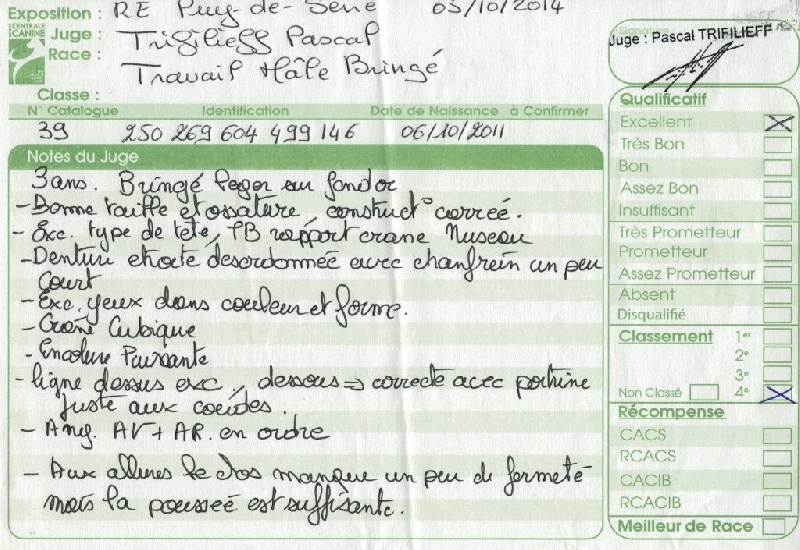 Exposition : RE Puy-de-Serre 05/10/2014
CENTRALE
CANINE
Juge : Trifilieff Pascal
Race : Travail Mâle Bringé
Classe :
N° Catalogue Identification Date de Naissance à Confirmer
39 250 269 604 499 146 06/10/2011
Notes du Juge
3ans. Bringé leger au
- Bonne taille et ossature, construct° carrée.
- Exc. type de tête, TB rapport crane Museau
- Denture etroite desordonnée avec chanfrein un peu
court
- Exc. yeux dans couleur et forme.
- Crane Cubique
- Encolure Puissante
- ligne dessus exc, dessous => correcte avec poitrine
juste aux coudes.
- Ang. AV + AR. en ordre
- Aux allures le dos manque un peu de fermeté
mais la poussée est suffisante.
Juge : Pascal TRIFILIEFF
Qualificatif
Excellent
Très Bon
Bon
Assez Bon
Insuffisant
Très Prometteur
Prometteur
Assez Prometteur
Absent
Disqualifié
Classement 1er
2e
3e
Non Classé 4e
Récompense
CACS
RCACS
CACIB
RCACIB
Meilleur de Race